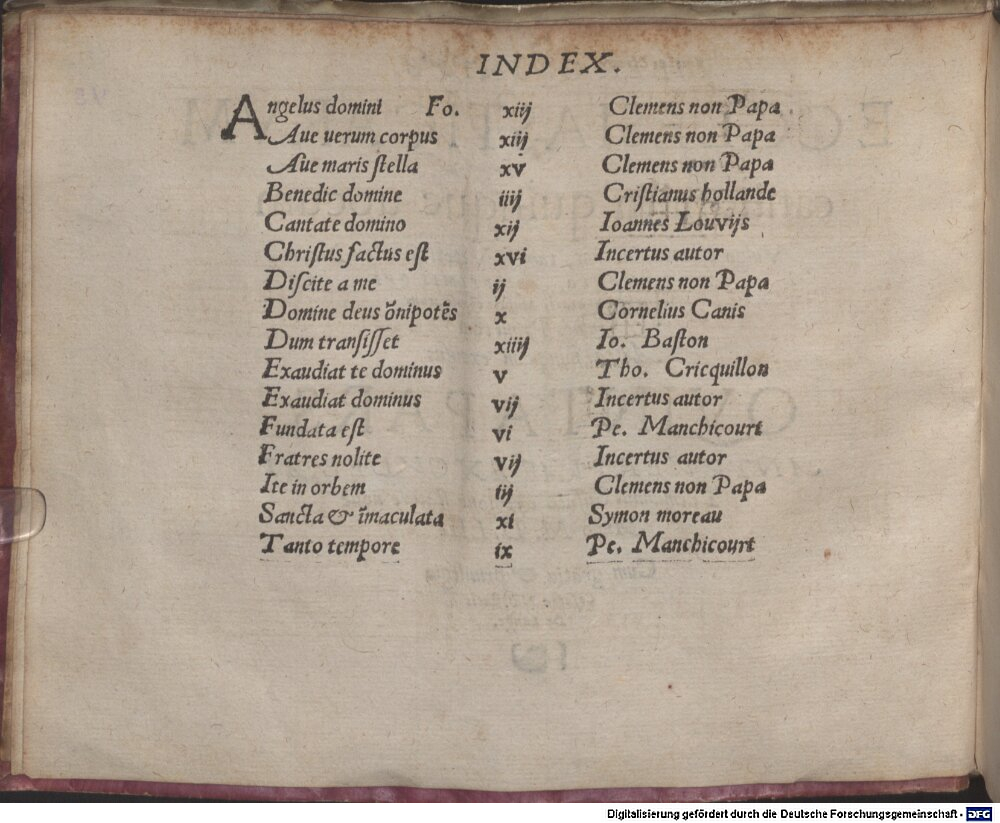 INDEX.
Angelus domini Fo. xiij Clemens non Papa
Aue uerum corpus xiij Clemens non Papa
Aue maris stella xv Clemens non Papa
Benedic domine iiij Cristianus hollande
Cantate domino xij Ioannes Louvijs
Christus factus est xvi Incertus autor
Discite a me ij Clemens non Papa
Domine deus õnipotẽs x Cornelius Canis
Dum transisset xiiij Io. Baston
Exaudiat te dominus v Tho. Cricquillon
Exaudiat dominus vij Incertus autor
Fundata est vi Pe. Manchicourt
Fratres nolite vij Incertus autor
Ite in orbem iij Clemens non Papa
Sancta & ĩmaculata xi Symon moreau
Tanto tempore ix Pe. Manchicourt
Digitalisierung gefördert durch die Deutsche Forschungsgemeinschaft - DFG